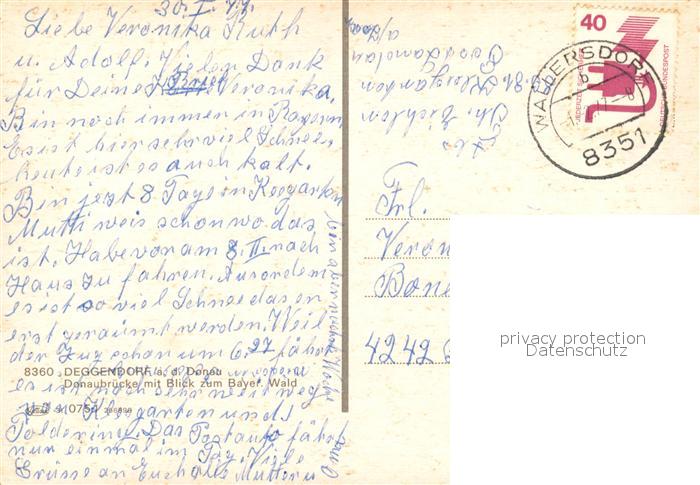 30. I. 77.
Liebe Veronika Ruth
u. Adolf. Vielen Dank
für Deine Brief Veronika.
Bin noch immen in Bayern
Es ist hier sehr viel Schnee
heute ist es auch kalt.
Bin jezt 8 Tage in Keegarten
Mutti weis schon wo das
ist. Habe vor am 8. II. nach
Haus zu fahren. Ausordem
es ist so viel Schnee das er
erst geraumt werden. Weil
der Zug schon um 6.27 fährt
es ist noch sehr weit weg
von Kleegarten und
Poldering. Das Postauto fährt
nur einmal im Tag. Viele
Grüsse an Euch alle Mutter u
bin aber nächste Woche
8360 DEGGENDORF a. d. Donau
Donaubrücke mit Blick zum Bayer. Wald
Abs
Kleegarten
Post Landau
a/Isar
40
JEDERZEIT SICHERHEIT
DEUTSCHE BUNDESPOST
WALLERSDORF
b
8351
Frl.
Veron
4242
privacy protection
Datenschutz